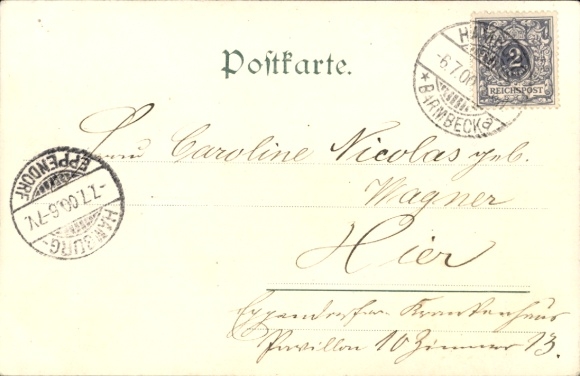 Postkarte.
HAMBURG
-6.7.00
*BARMBECK a
2
REICHSPOST
Frau Caroline Nicolas geb.
Wagner
Hier
Eppendorfer Krankenhaus
Pavillon 10 Zimmer 13.
HAMBURG-
-7.7.00.6-7V.
EPPENDORF